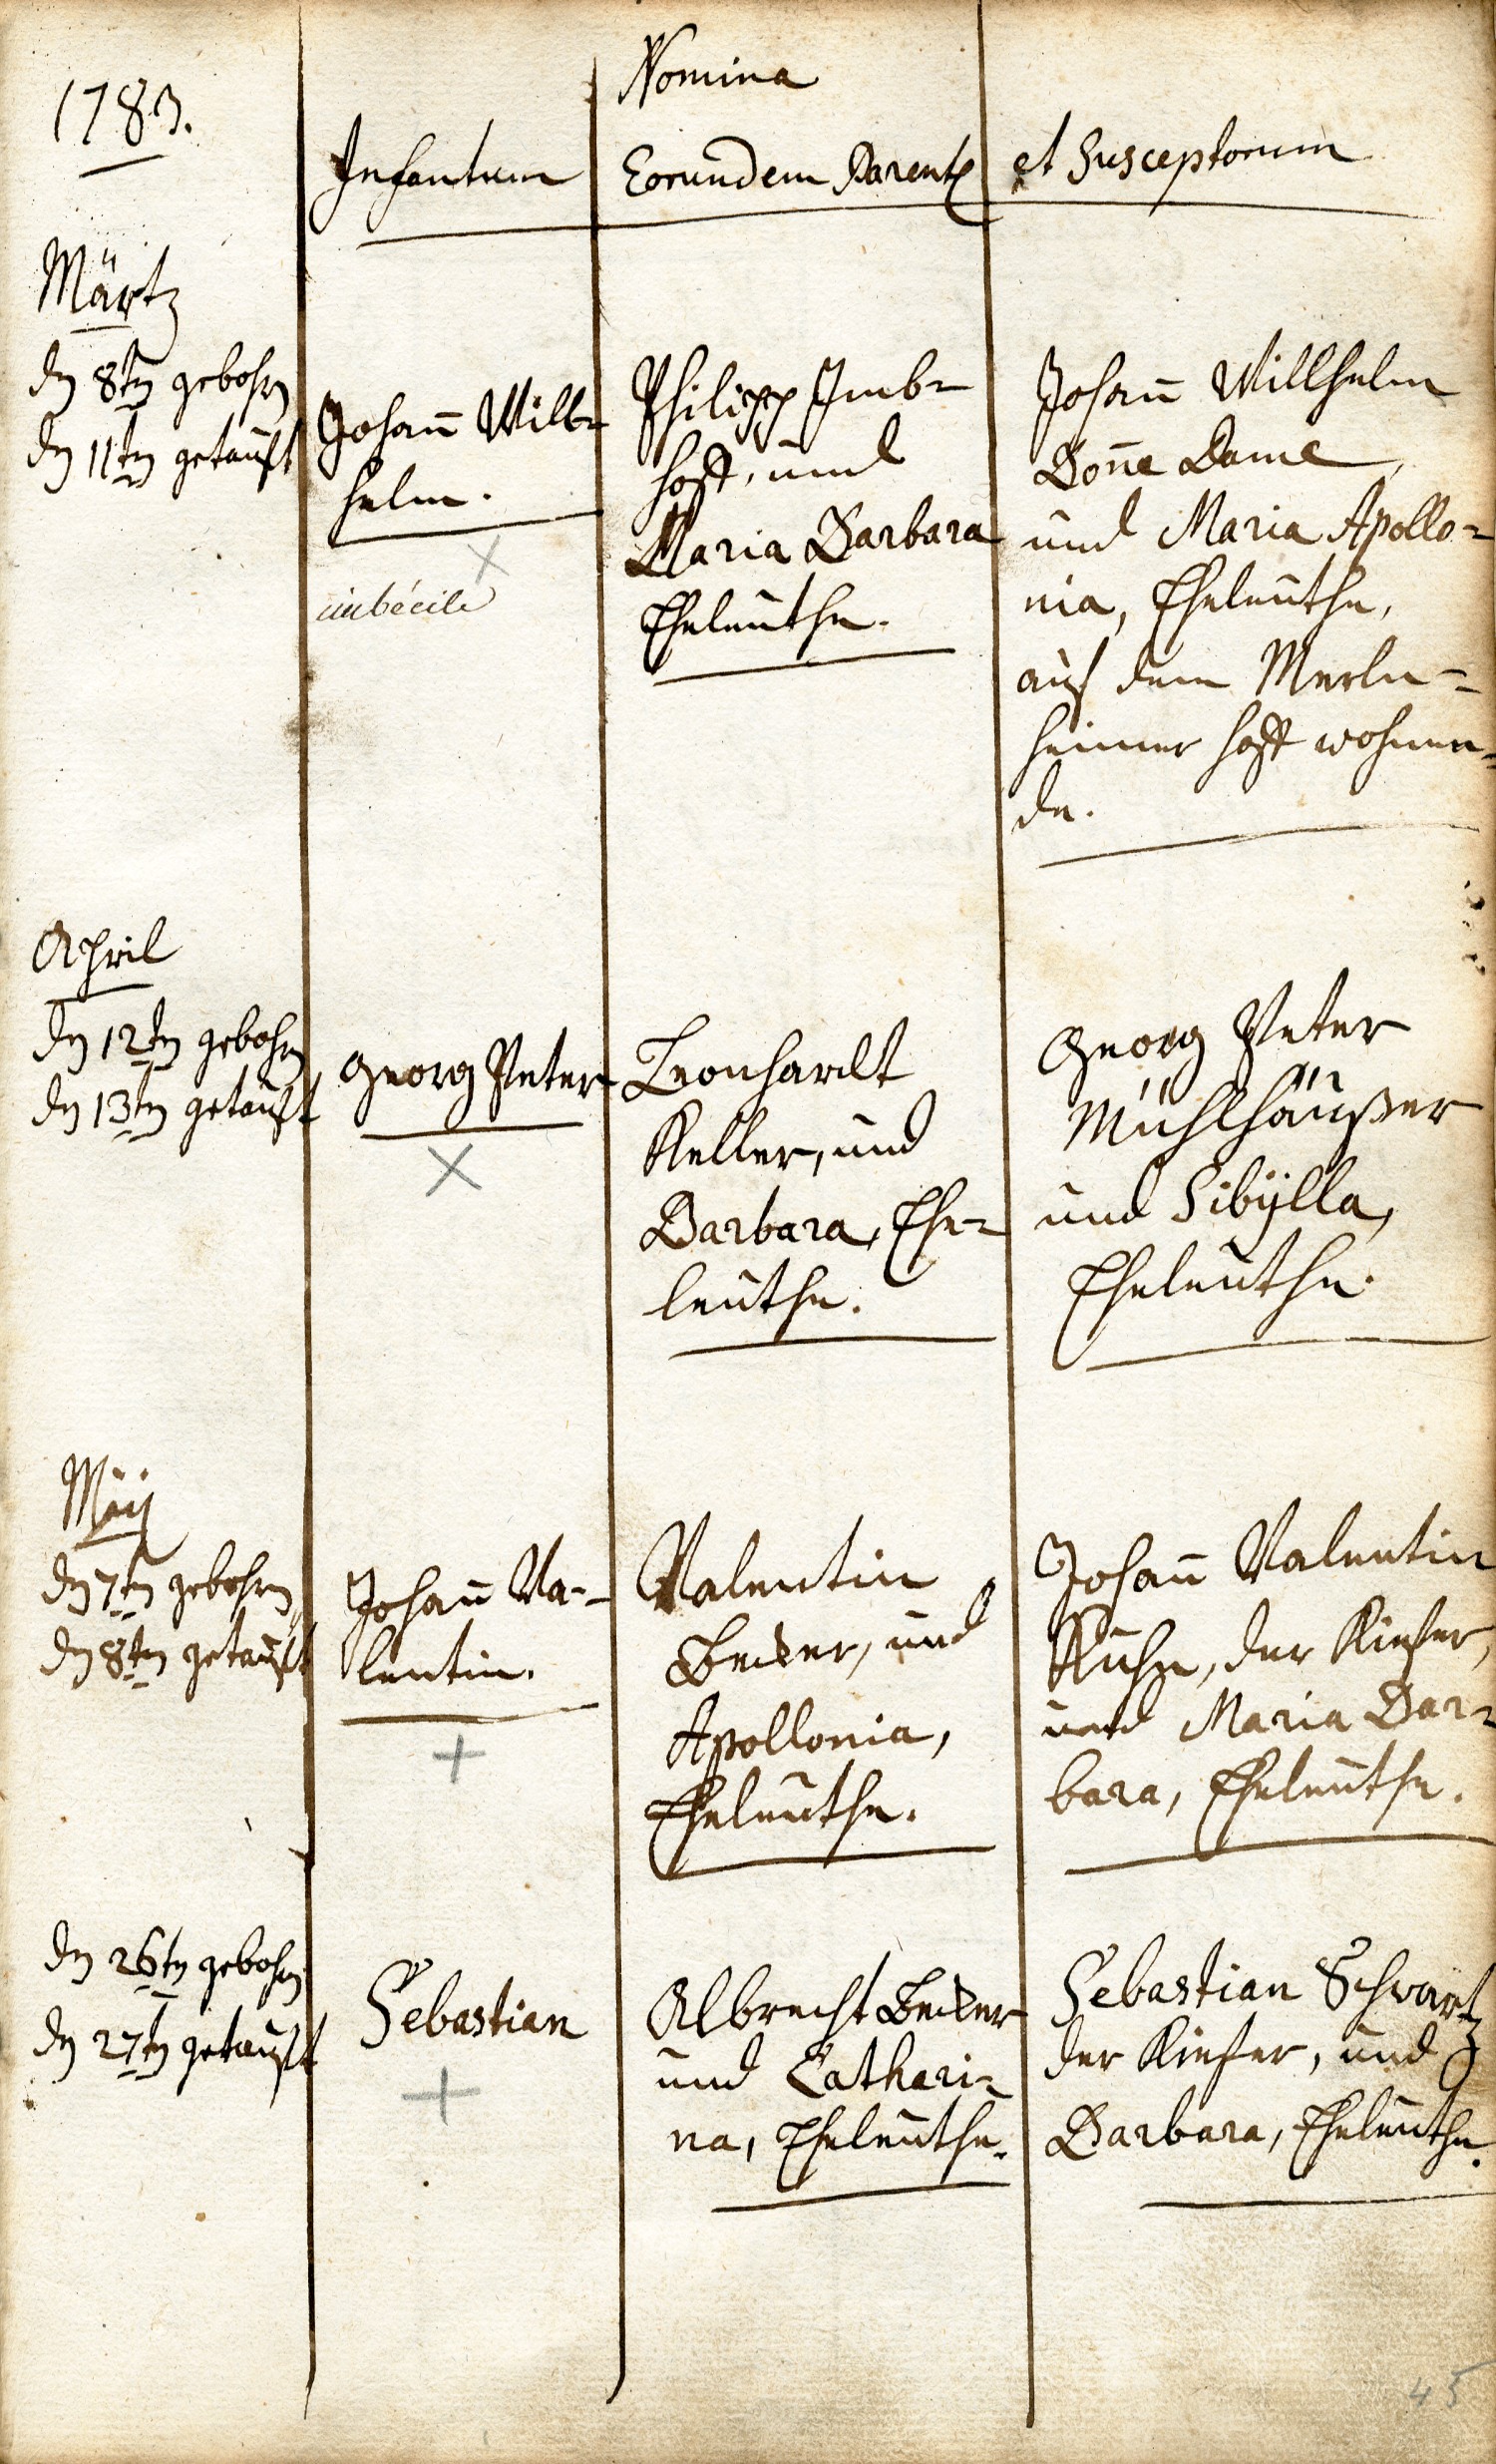 1783.
Nomina
Infantum
Eorundem Parent
et Susceptorum
Märtz
dn 8tn gebohrn
dn 11tn getaufft
Johann̄ Will-
helm.
imbécile
Philipp Imb-
hoff, und
Maria Barbara
Eheleuthe.
Johann̄ Willhelm
Bon̄e Dame,
und Maria Apollo-
nia, Eheleuthe,
auf dem Merln-
heimer hoff wohnen-
de.
April
dn 12tn gebohrn
dn 13tn getaufft
Georg Peter
Leonhardt
Keller, und
Barbara, Ehe-
leuthe.
Georg Peter
Mühlhäußer
und Sibÿlla,
Eheleuthe.
Maÿ
dn 7tn gebohrn,
dn 8tn getaufft
Johann̄ Va-
lentin.
Valentin
Becker, und
Apollonia,
Eheleuthe.
Johann̄ Valentin
Kuhn, der Kiefer,
und Maria Bar-
bara, Eheleuthe.
dn 26tn gebohrn
dn 27tn getaufft
Sebastian
Albrecht Becker
und Cathari-
na, Eheleuthe.
Sebastian Schwartz
der Kiefer, und
Barbara, Eheleuthe.
45